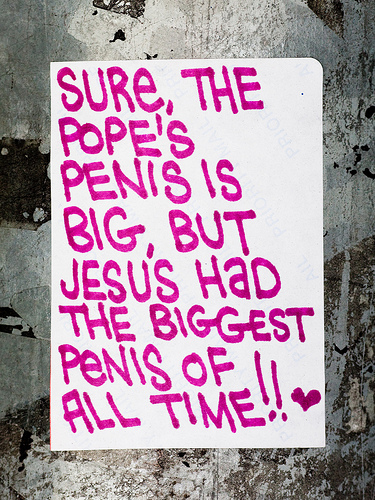 SURE, THE
POPE'S
PENIS IS
BIG, BUT
JESUS HAD
THE BIGGEST
PENIS OF
ALL TIME!! ♥